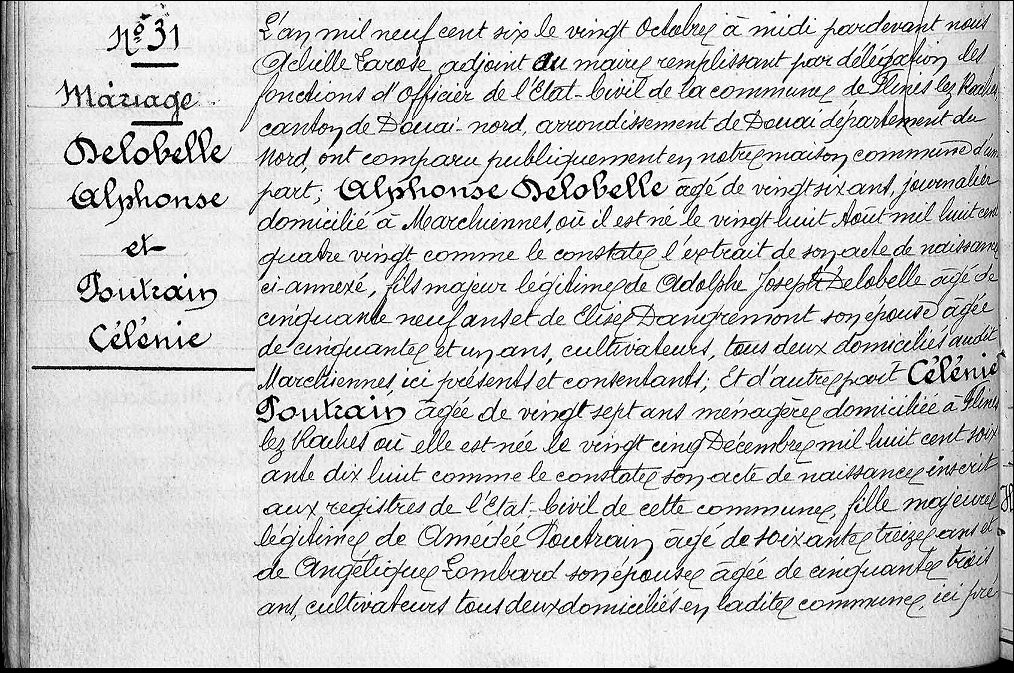 Nº 31
Mariage
Delobelle
Alphonse
et
Poutrain
Célénie
L'an mil neuf cent six le vingt Octobre à midi pardevant nous
Achille Larose adjoint au maire remplissant par délégation les
fonctions d'Officier de l'Etat-Civil de la commune de Flines lez Raches
canton de Douai-nord, arrondissement de Douai département du
Nord ont comparu publiquement en notre maison commune d'un
part, Alphonse Delobelle âgé de vingt six ans, journalier
domicilié à Marchiennes, où il est né le vingt huit Août mil huit cent
quatre vingt comme le constate l'extrait de son acte de naissance
ci-annexé, fils majeur légitime de Adolphe Joseph Delobelle âgé de
cinquante neuf ans et de Elise Dangremont son épouse âgée
de cinquante et un ans, cultivateurs, tous deux domiciliés audit
Marchiennes ici présents et consentants; Et d'autre part Célénie
Poutrain âgée de vingt sept ans ménagère domiciliée à Flines
lez Raches où elle est née le vingt cinq Décembre mil huit cent soix
ante dix huit comme le constate son acte de naissance inscrit
aux registres de l'Etat-Civil de cette commune, fille majeure
légitime de Amédée Poutrain âgé de soixante treize ans et
de Angélique Lombard son épouse âgée de cinquante trois
ans, cultivateurs tous deux domiciliés en ladite commune, ici pré